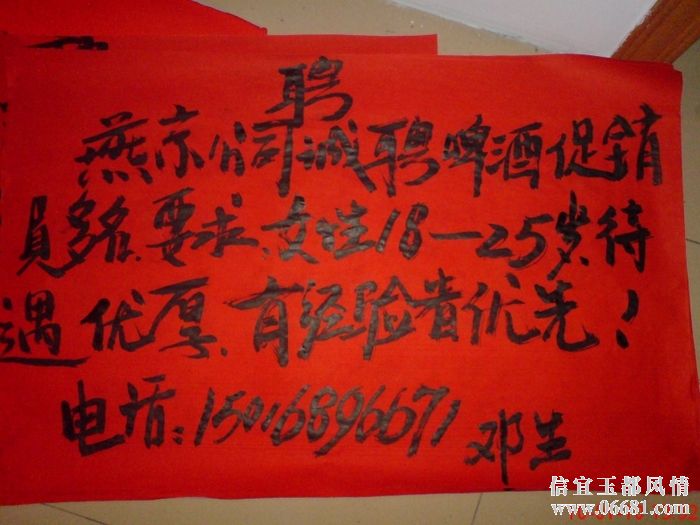 聘
燕京公司诚聘啤酒促销
員多名、要求、女性18—25岁、待
遇优厚、有经验者优先!
电话:15016896671 邓生
信宜玉都风情
www.06681.com